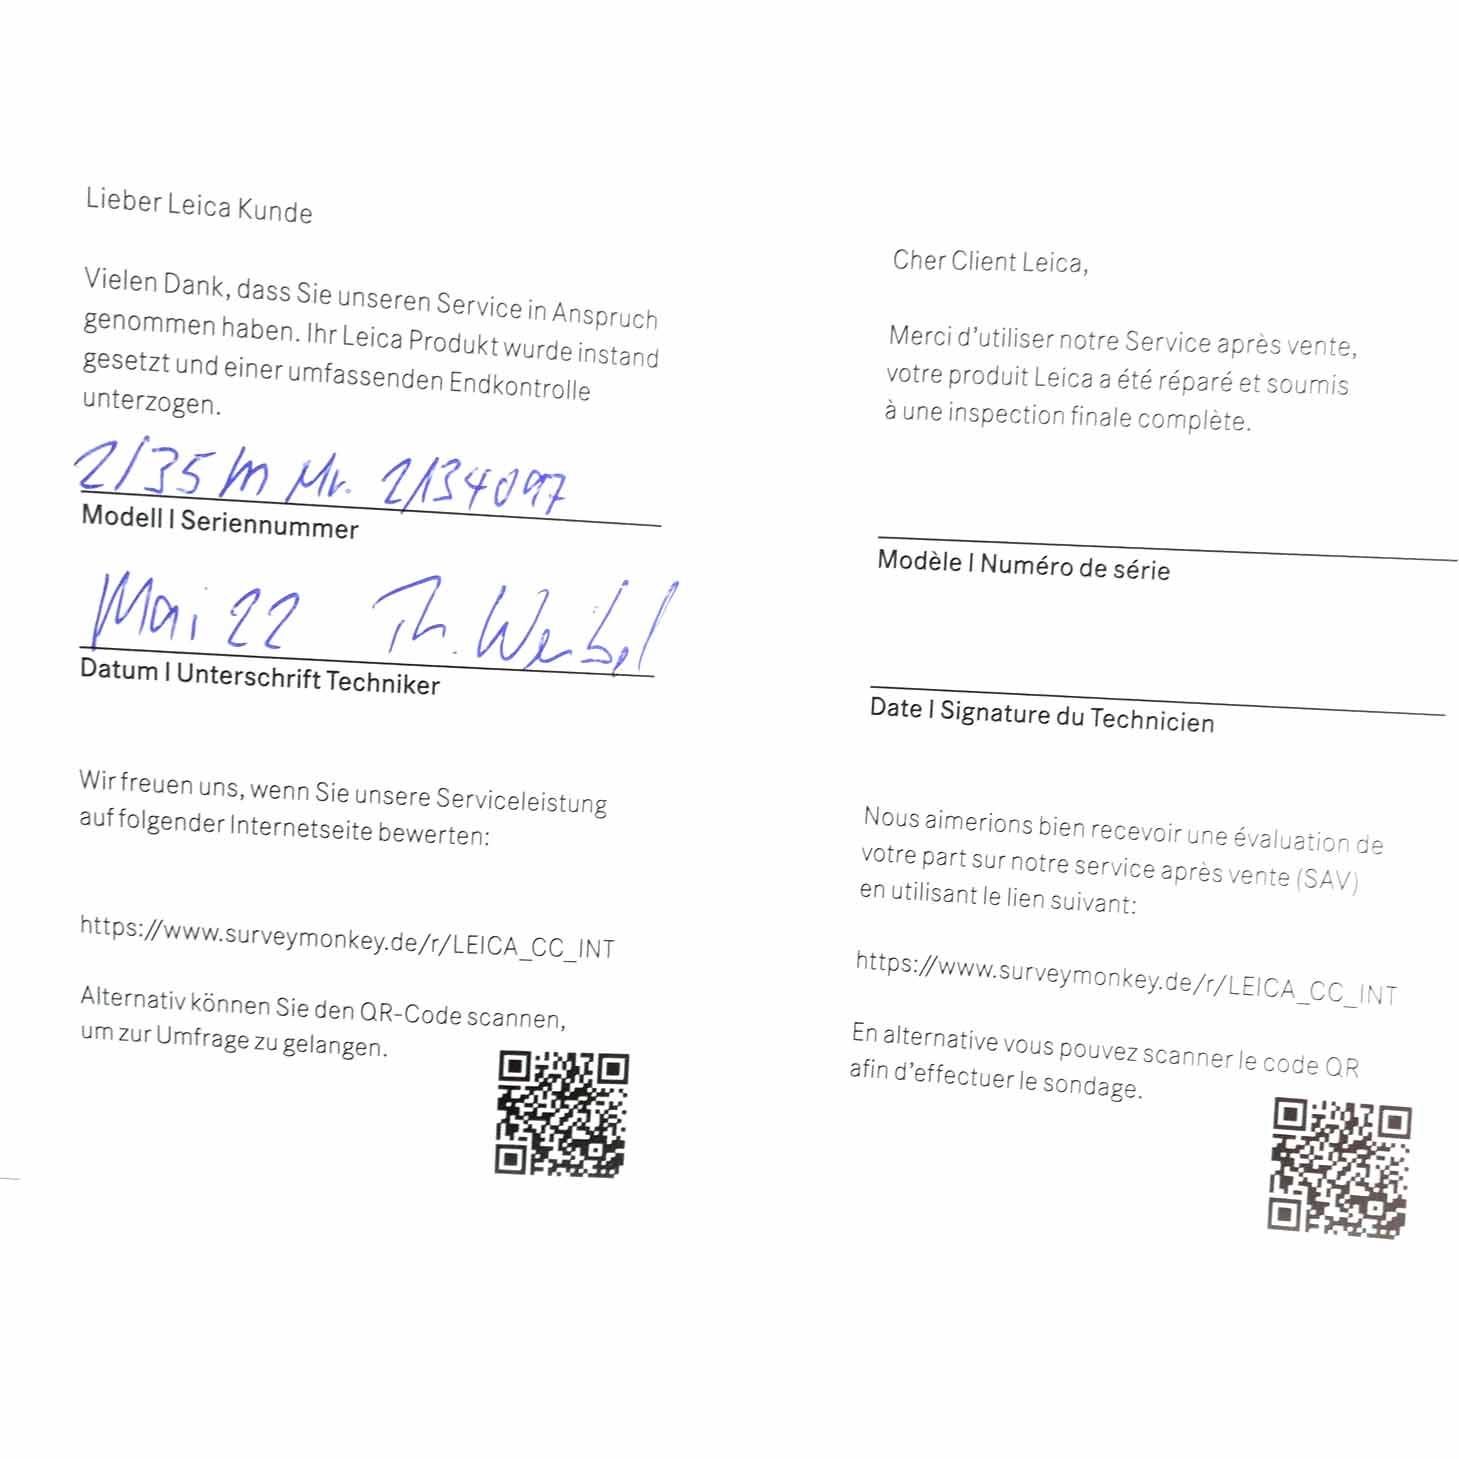 Lieber Leica Kunde
Vielen Dank, dass Sie unseren Service in Anspruch
genommen haben. Ihr Leica Produkt wurde instand
gesetzt und einer umfassenden Endkontrolle
unterzogen.
2/35 M Nr. 2134097
Modell | Seriennummer
Mai 22 Th. Weibel
Datum | Unterschrift Techniker
Wir freuen uns, wenn Sie unsere Serviceleistung
auf folgender Internetseite bewerten:
https://www.surveymonkey.de/r/LEICA_CC_INT
Alternativ können Sie den QR-Code scannen,
um zur Umfrage zu gelangen.
Cher Client Leica,
Merci d'utiliser notre Service après vente,
votre produit Leica a été réparé et soumis
à une inspection finale complète.
Modèle | Numéro de série
Date | Signature du Technicien
Nous aimerions bien recevoir une évaluation de
votre part sur notre service après vente (SAV)
en utilisant le lien suivant:
https://www.surveymonkey.de/r/LEICA_CC_INT
En alternative vous pouvez scanner le code QR
afin d'effectuer le sondage.